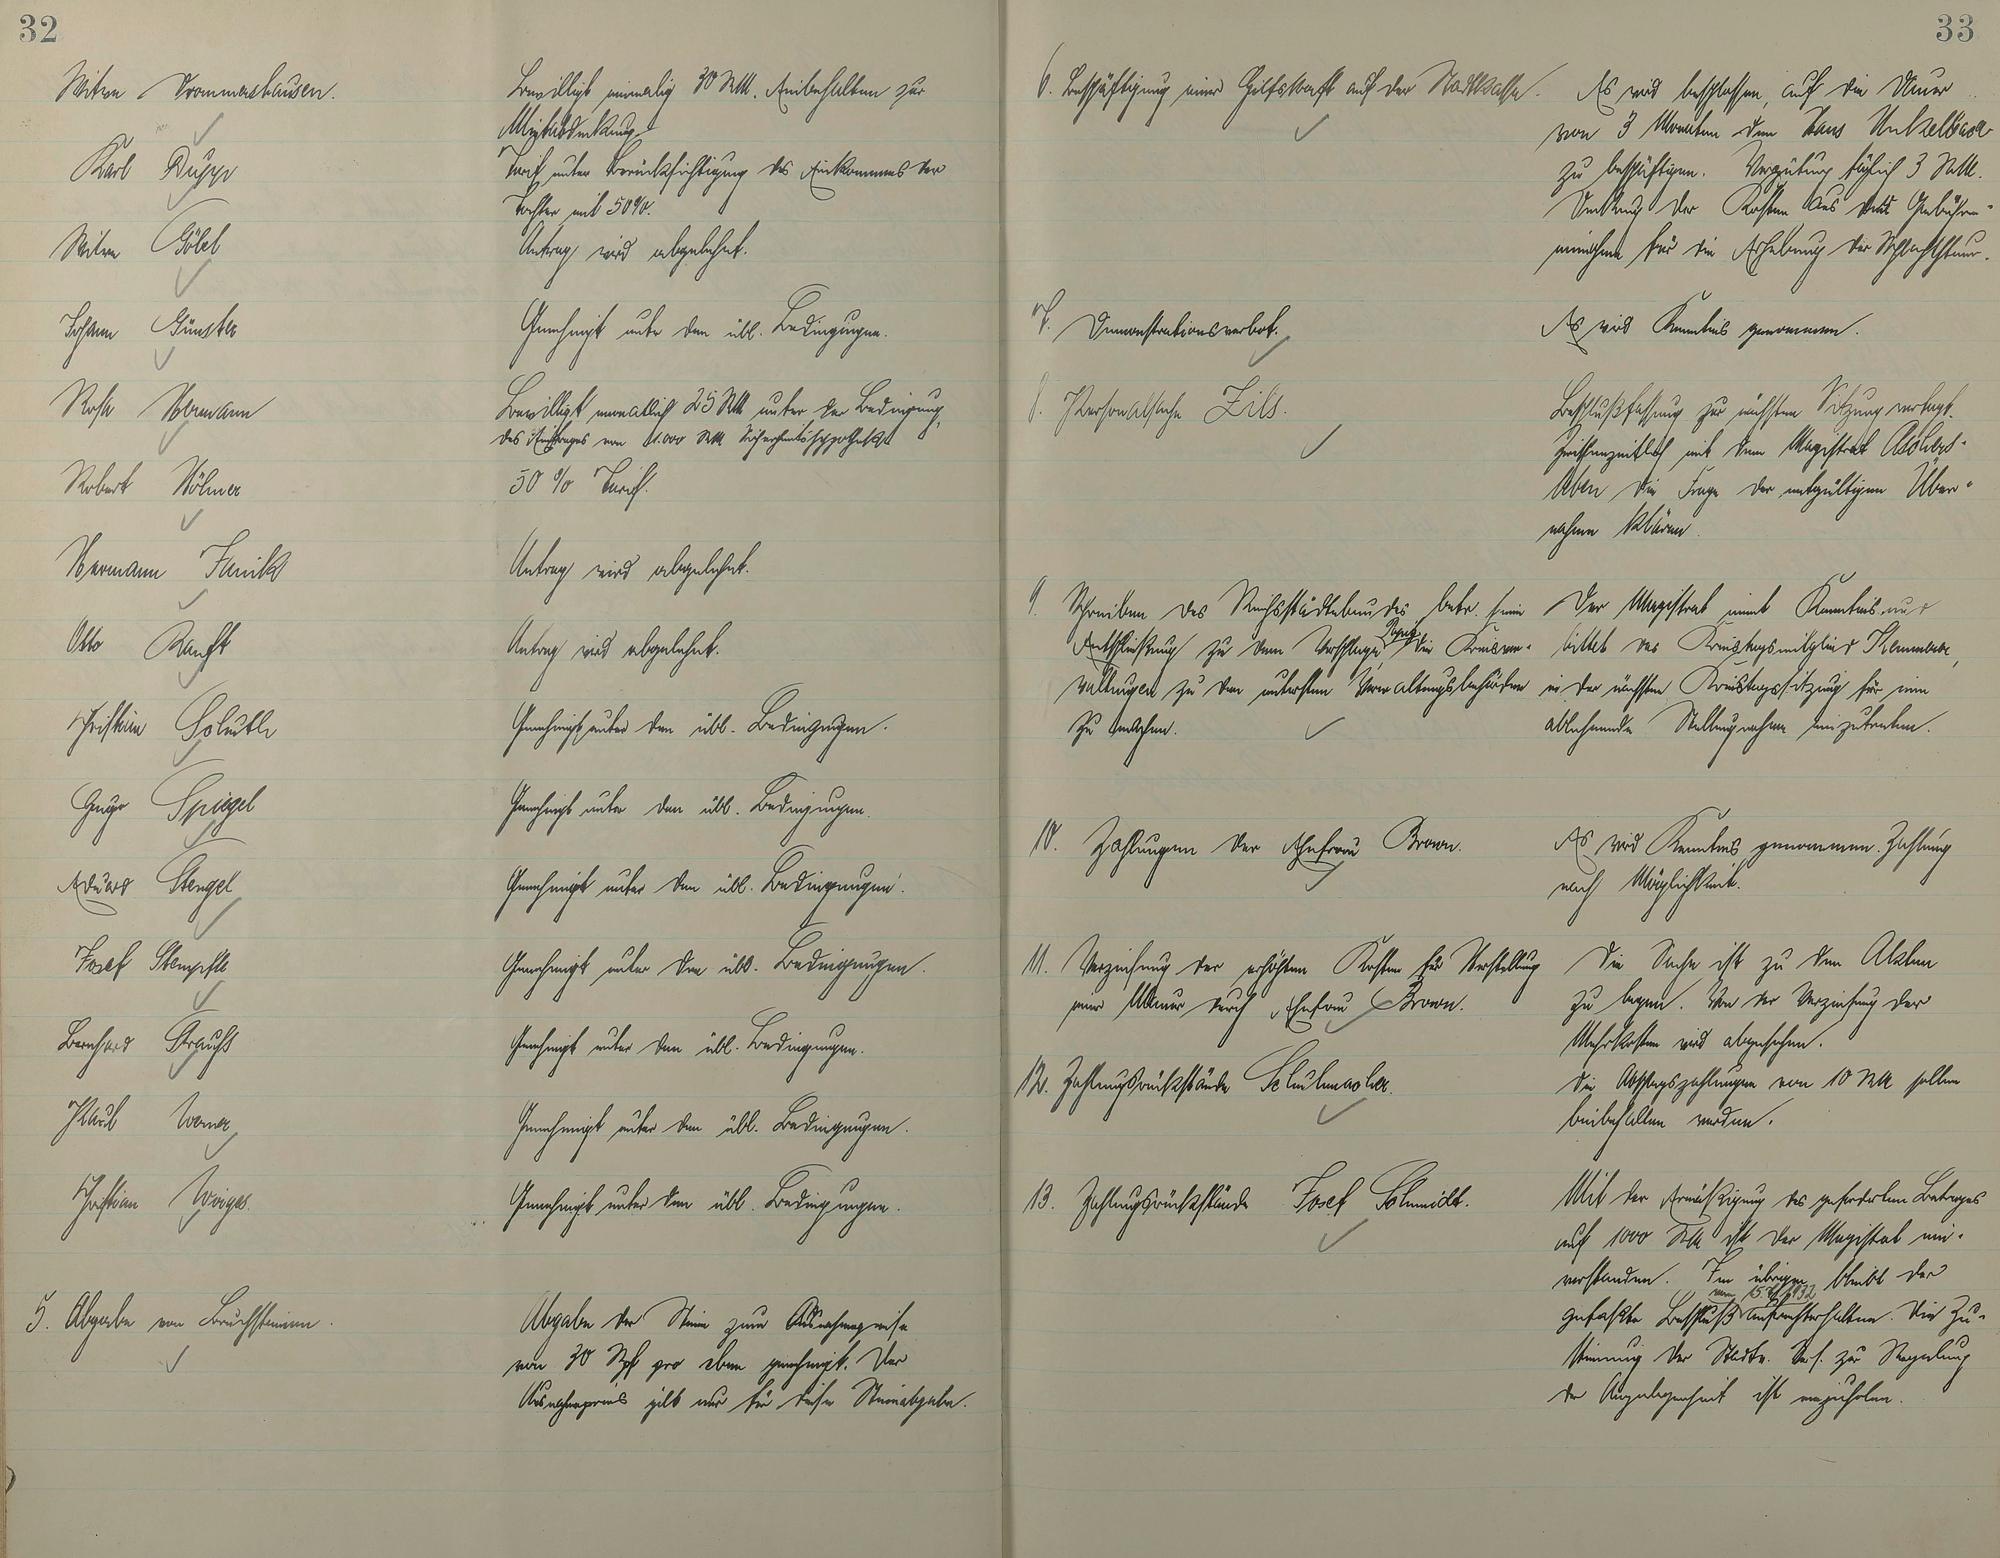 32
Witwe Drommershausen.
Bewilligt einmalig 30 RM. Einbehalten zur
Mietsdeckung.
Karl Rupp
Tarif unter Berücksichtigung des Einkommens der
Tochter mit 50%.
Witwe Göbel
Antrag wird abgelehnt.
Johann Günster
Genehmigt unter den übl. Bedingungen.
Rosa Hermann
Bewilligt monatlich 25 RM unter der Bedingung,
des Eintrages von 1.000 RM Sicherheitshypothek
Robert Höhner
50 % Tarif.
Hermann Janik
Antrag wird abgelehnt.
Otto Ranft
Antrag wird abgelehnt.
Christian
Genehmigt unter den übl. Bedingungen.
Georg Spiegel
Genehmigt unter den übl. Bedingungen.
Eduard Stengel
Genehmigt unter den übl. Bedingungen.
Josef Stempfle
Genehmigt unter den übl. Bedingungen.
Bernhard Strauss
Genehmigt unter den übl. Bedingungen.
Paul Werner
Genehmigt unter den übl. Bedingungen.
Christian Wirges
Genehmigt unter den übl. Bedingungen.
5. Abgabe von Bruchsteinen.
Abgabe der Steine zum Ausnahmepreise
von 30 Rpf pro cbm genehmigt. Der
Ausnahmepreis gilt nur für diese Steinabgabe.
33
6. Beschäftigung einer Hilfskraft auf der Stadtkasse.
Es wird beschlossen, auf die Dauer
von 3 Monaten den Hans Unkelbach
zu beschäftigen. Vergütung täglich 3 RM.
Deckung der Kosten aus der Gebühren-
einnahme für die Erhebung der Schlachtsteuer.
7. Demonstrationsverbot.
Es wird Kenntnis genommen.
8. Personalsache Zils.
Beschlußfassung zur nächsten Sitzung vertagt.
Zwischenzeitlich mit dem Magistrat Aschers-
leben die Frage der entgültigen Über-
nahme klären.
9. Schreiben des Reichsstädtebundes betr. seine
Entschließung zu dem Vorschlage, die Kreisver-
waltungen zu den untersten Verwaltungsbehörden
zu machen.
Der Magistrat nimmt Kenntnis und
bittet das Kreistagsmitglied Klemmer,
in der nächsten Kreistagssitzung für eine
ablehnende Stellungnahme einzutreten.
10. Zahlungen der Ehefrau Brown.
Es wird Kenntnis genommen. Zahlung
nach Möglichkeit.
11. Verzinsung der erhöhten Kosten für Herstellung
einer Mauer durch Ehefrau Brown.
Die Sache ist zu den Akten
zu legen. Von der Verzinsung der
Mehrkosten wird abgesehen.
12. Zahlungsrückstände Schuhmacher.
Die Abschlagszahlungen von 10 RM sollen
beibehalten werden.
13. Zahlungsrückstände Josef Schmidt.
Mit der Ermäßigung des geforderten Betrages
auf 1000 RM ist der Magistrat ein-
verstanden. Im übrigen bleibt der
gefaßte Beschluß aufrechterhalten. Die Zu-
stimmung der Stadtv. Vers. zur Regelung
der Angelegenheit ist einzuholen.